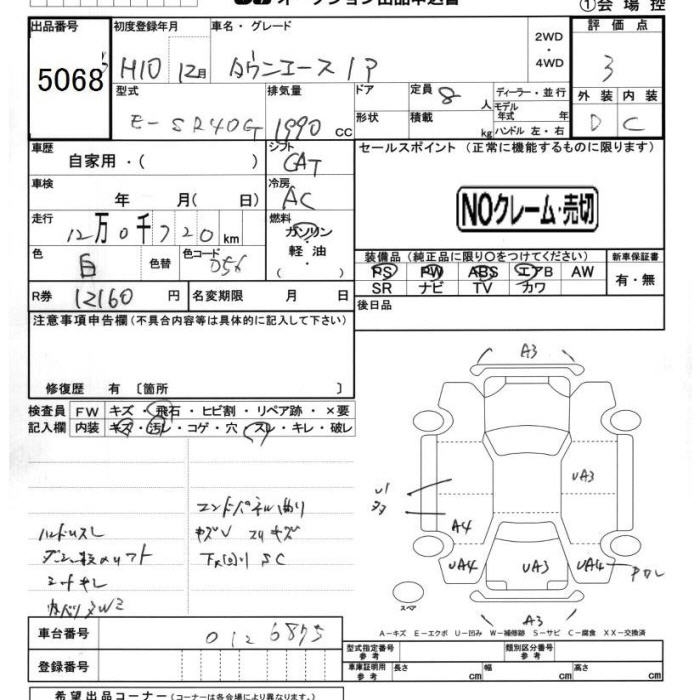 オークション出品申込書
①会場控
出品番号 初度登録年月 車名・グレード 2WD・4WD 評価点
5068 H10 12月 タウンエース 1P 3
型式 排気量 ドア 定員 8 人 ディーラー・並行 外装 内装
E-SR40G 1990 cc 形状 積載 kg モデル年式 年 ハンドル 左・右 D C
車歴 シフト セールスポイント (正常に機能するものに限ります)
自家用・( ) CAT
車検 年 月( 日) 冷房 AC
NOクレーム・売切
走行 12万0千720km 燃料 ガソリン・軽油・( )
色 白 色替 色コード 056
装備品 (純正品に限り○をつけてください) 新車保証書
PS PW ABS エアB AW 有・無
SR ナビ TV カワ
R券 12160 円 名変期限 月 日 後日品
注意事項申告欄 (不具合内容等は具体的に記入して下さい)
修復歴 有 [箇所 ]
検査員 FW キズ・飛石・ヒビ割・リペア跡・×要
記入欄 内装 キズ・汚レ・コゲ・穴・スレ・キレ・破レ
エンドパネル曲り
下廻り SC
シートキレ
A3
UA3
A4
UA4 UA3 UA4
スペア
A3
A-キズ E-エクボ U-凹み W-補修跡 S-サビ C-腐食 XX-交換済
車台番号 0126875
登録番号
型式指定番号 参考 類別区分番号 参考
車庫証明用 参考 長さ cm 幅 cm 高さ cm
希望出品コーナー (コーナーは各会場により異なります)